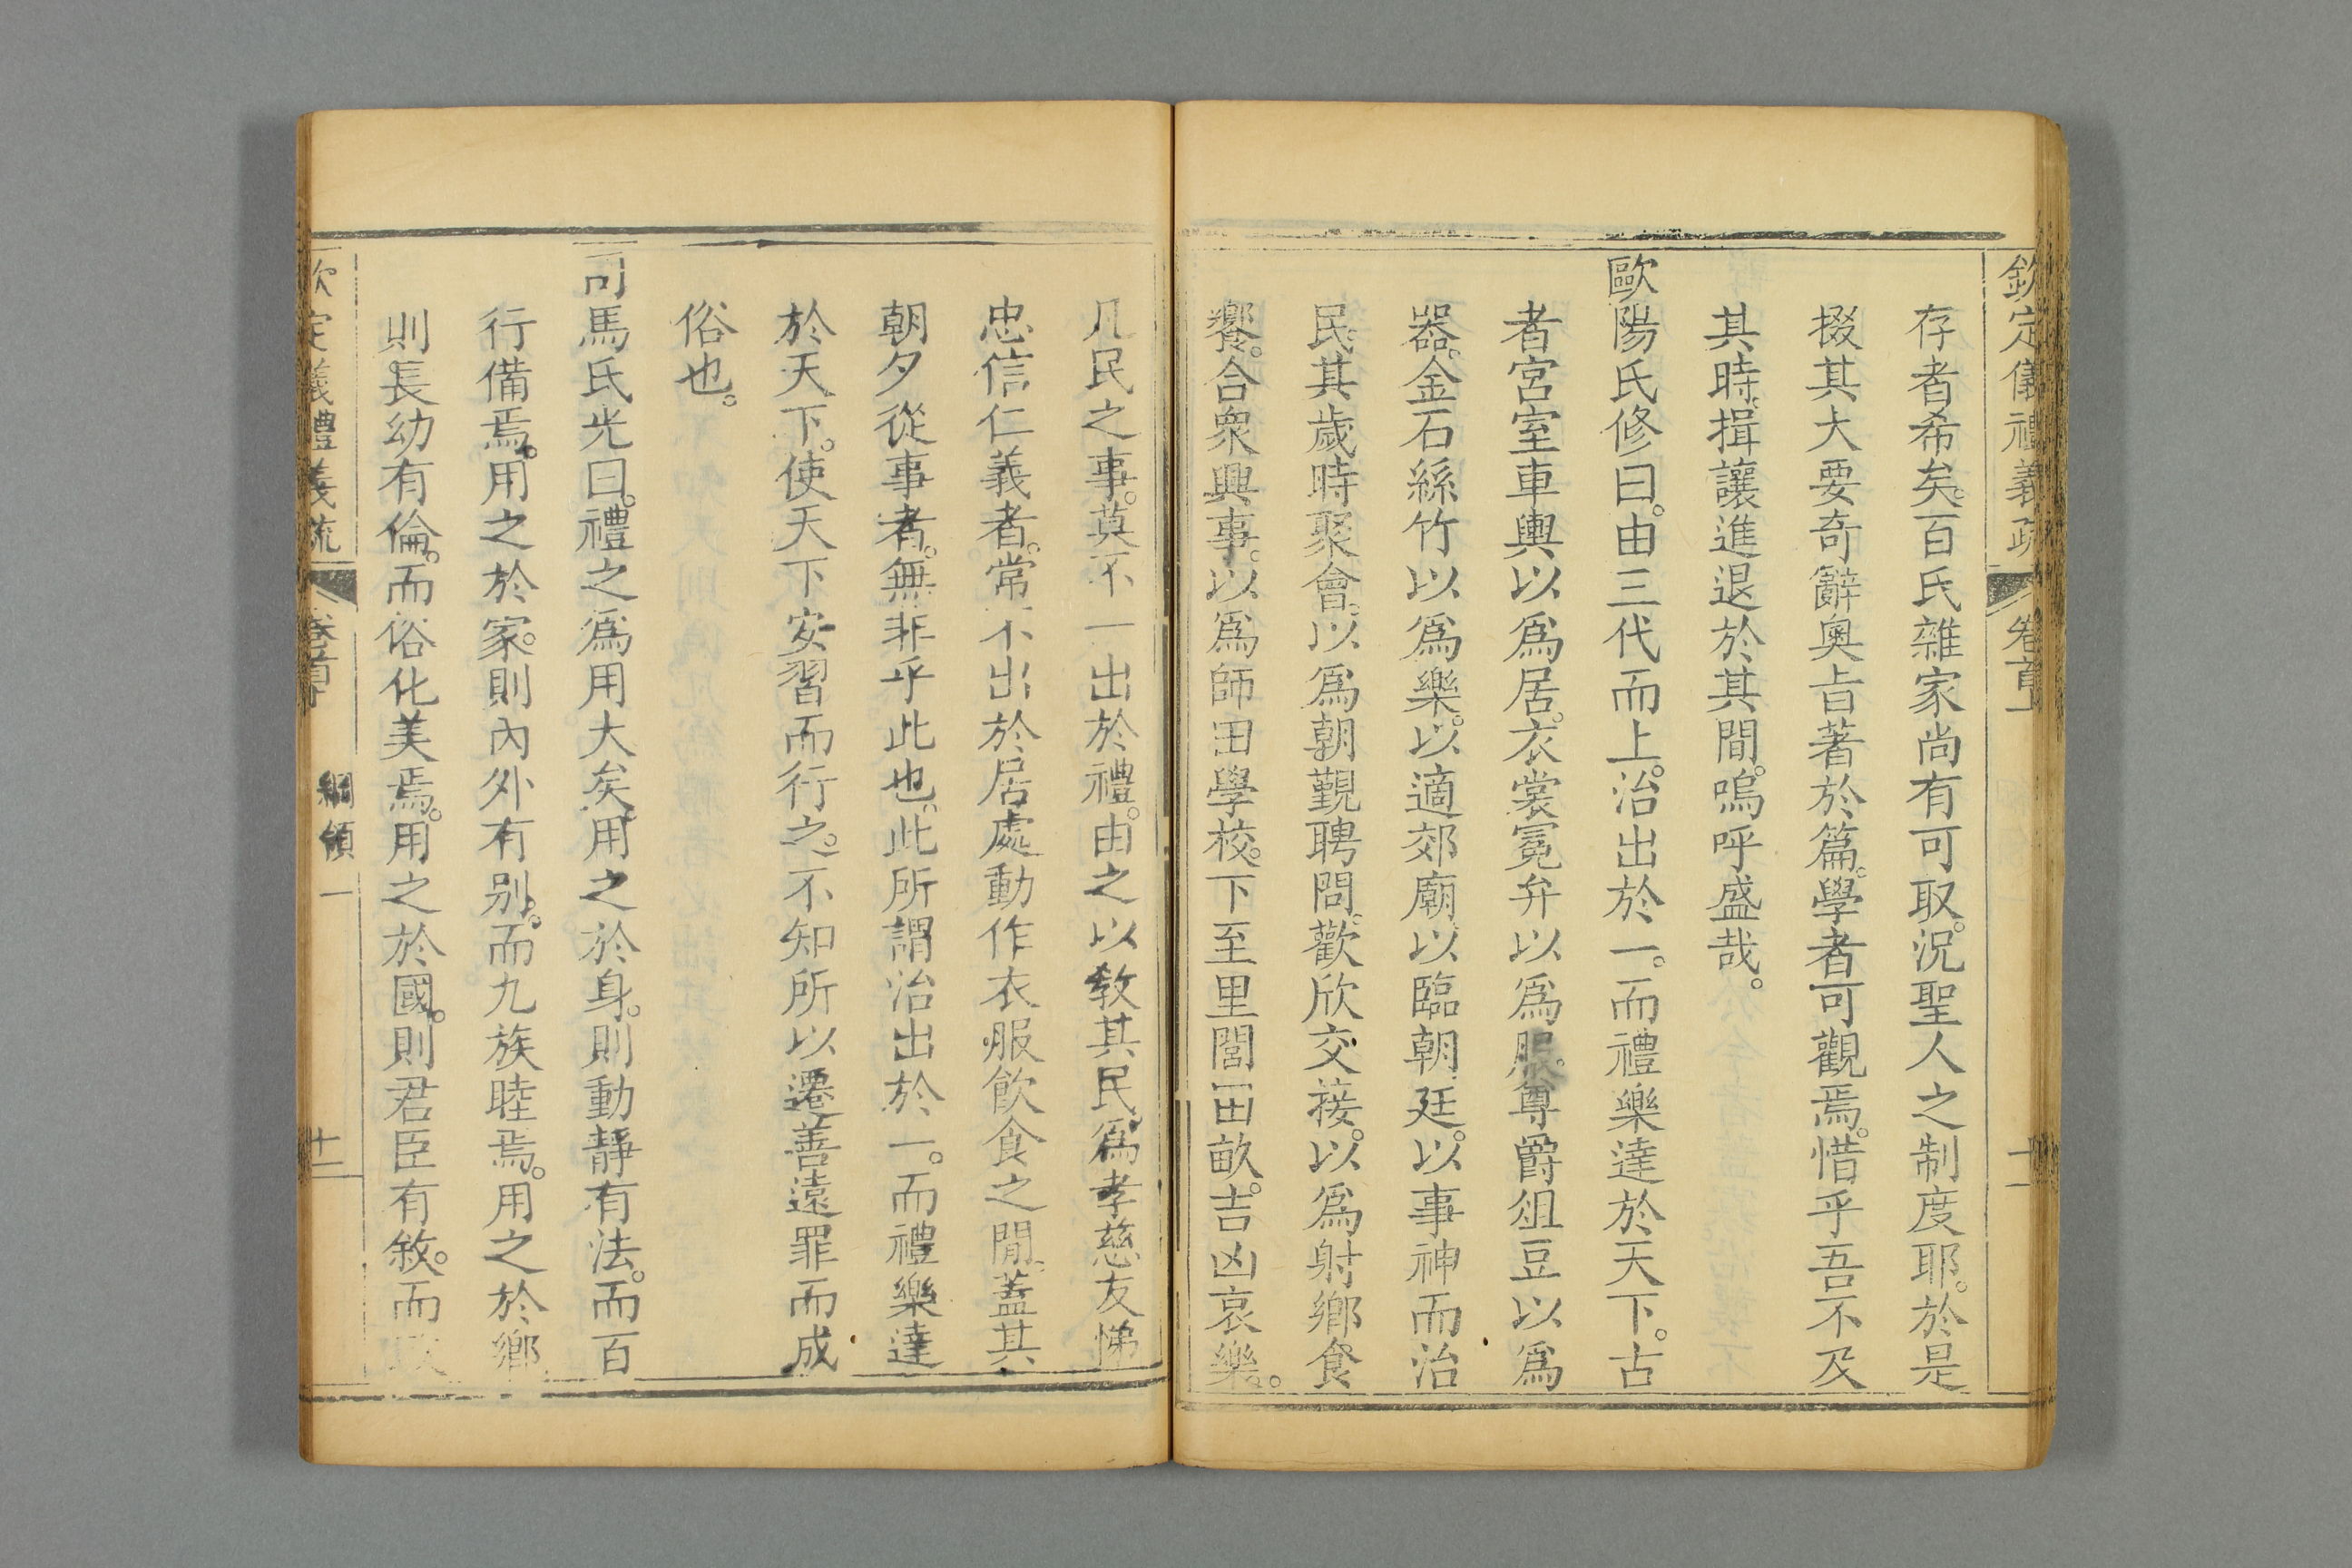 欽定儀禮義疏 卷首 十一
存者希矣。百氏雜家尚有可取。況聖人之制度耶。於是
掇其大要奇辭奧旨著於篇。學者可觀焉。惜乎吾不及
其時。揖讓進退於其間。嗚呼盛哉。
歐陽氏修曰。由三代而上。治出於一。而禮樂達於天下。古
者宮室車輿以爲居。衣裳冕弁以爲服。尊爵俎豆以爲
器。金石絲竹以爲樂。以適郊廟。以臨朝廷。以事神而治
民。其歲時聚會。以爲朝覲聘問。歡欣交接。以爲射鄉食
饗。合衆興事。以爲師田學校。下至里閭田畝。吉凶哀樂。
凡民之事。莫不一出於禮。由之以敎其民。爲孝慈友悌
忠信仁義者。常不出於居處動作衣服飮食之閒。蓋其
朝夕從事者。無非乎此也。此所謂治出於一。而禮樂達
於天下。使天下安習而行之。不知所以遷善遠罪而成
俗也。
司馬氏光曰。禮之爲用大矣。用之於身。則動靜有法。而百
行備焉。用之於家。則內外有别。而九族睦焉。用之於鄉
則長幼有倫。而俗化美焉。用之於國。則君臣有敘。而
欽定儀禮義疏 卷首 綱領一 十二